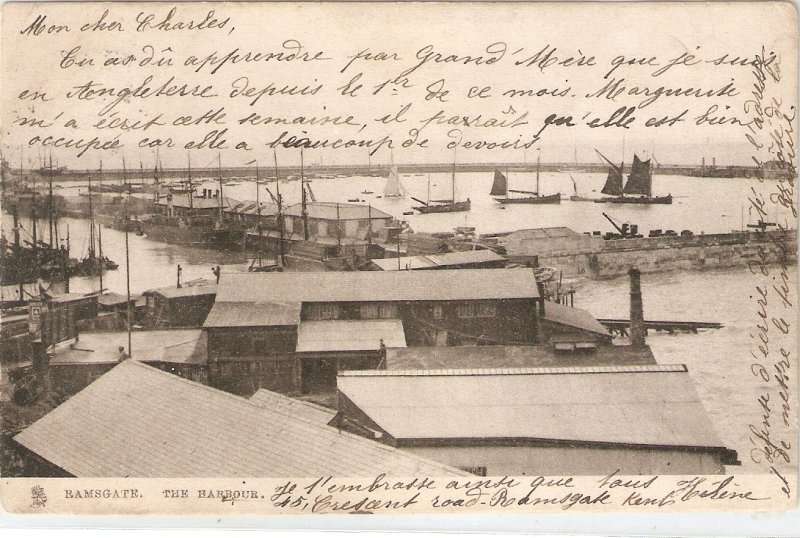 Mon cher Charles,
Tu as dû apprendre par Grand' Mère que je suis
en Angleterre depuis le 1er de ce mois. Marguerite
m'a écrit cette semaine, il parraît qu'elle est bien
occupée car elle a beaucoup de devoirs.
RAMSGATE. THE HARBOUR.
Je t'embrasse ainsi que tous Hélène
45, Crescent road - Ramsgate Kent
défense d'écrire du côté de l'adresse
et de mettre le timbre de la